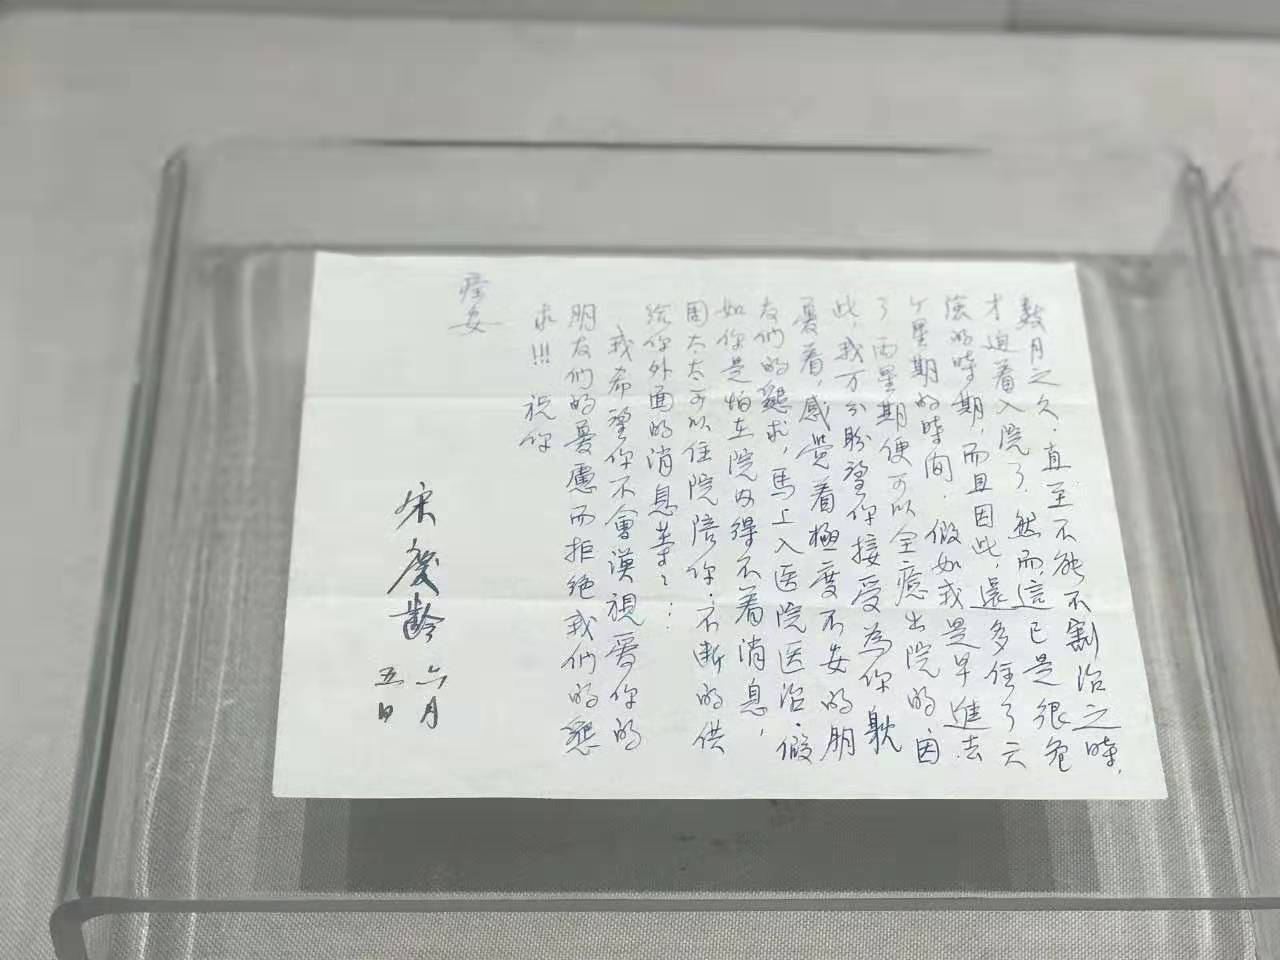 數月之久．直至不能不割治之時，
才迫着入院了．然而，這已是很危
險的時期，而且因此，還多住了六
个星期的時间．假如我是早進去
了兩星期便可以全癒出院的因
此，我万分盼望你接受為你耽
憂着，感覚着極度不安的朋
友們的懇求，馬上入医院医治．假
如你是怕在院内得不着消息，
周太太可以住院陪你．不断的供
給你外面的消息等等……
我希望你不會漠視愛你的
朋友們的憂慮而拒絕我們的懇
求!!! 祝你
痊安
宋慶齡
六月
五日